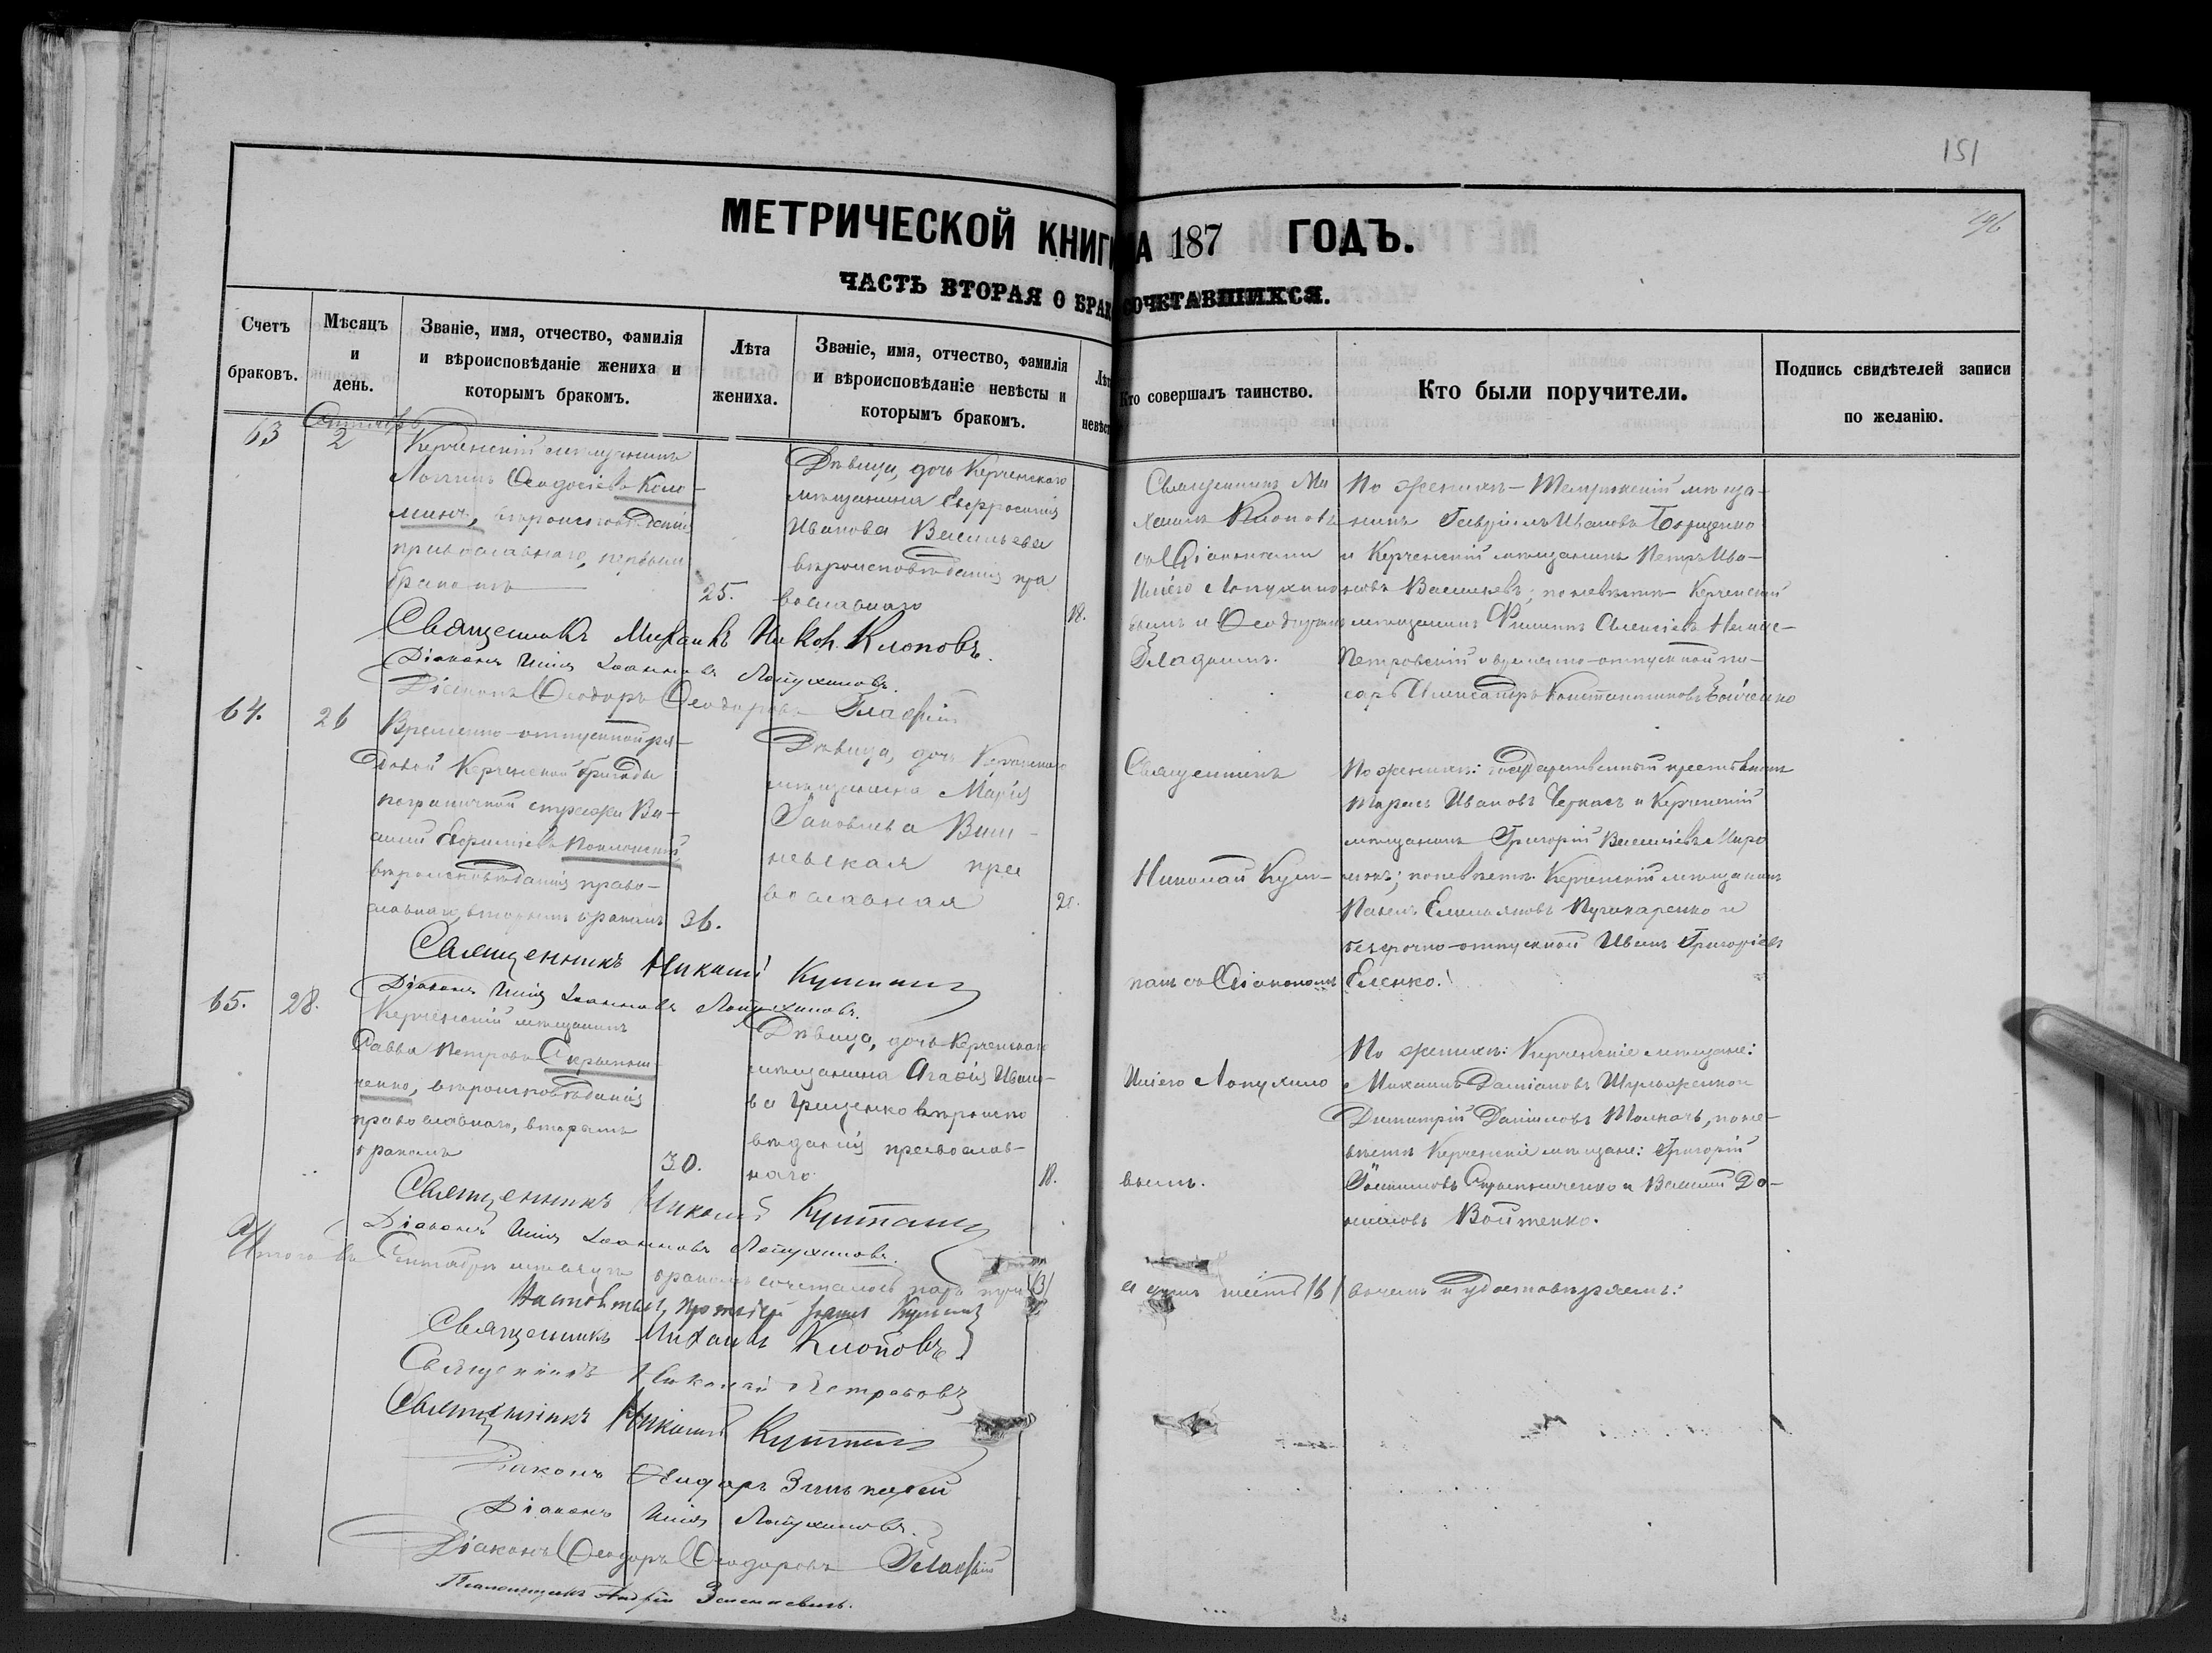 151
МЕТРИЧЕСКОЙ КНИГИ НА 187 ГОДЪ.
ЧАСТЬ ВТОРАЯ О БРАКОСОЧЕТАВШИХСЯ.
Счетъ браковъ.
Мѣсяцъ и день.
Званіе, имя, отчество, фамилія и вѣроисповѣданіе жениха и которымъ бракомъ.
Лѣта жениха.
Званіе, имя, отчество, фамилія и вѣроисповѣданіе невѣсты и которымъ бракомъ.
Лѣта невѣсты
Кто совершалъ таинство.
Кто были поручители.
Подпись свидѣтелей записи по желанію.
63
2
Керченскій мѣщанинъ
Ѳеодосіевъ Коло-
минъ, вѣроисповѣданія
православнаго, первымъ
бракомъ
25.
Дѣвица, дочь Керченскаго
мѣщанина Евфросинія
Иванова Васильева
вѣроисповѣданія пра
вославнаго
18.
Священникъ Ми
хаилъ Клоповъ
съ Діаконами
Иліею Лопухино
вымъ и Ѳеодоромъ
Гладкимъ.
По женихѣ – Темрюкскій мѣща-
нинъ Гавріилъ Ивановъ Борщенко
и Керченскій мѣщанинъ Петръ Ива-
новъ Васильевъ; по невѣстѣ Керченскій
мѣщанинъ Филиппъ Алексіевъ
Петровскій и временно-отпускной пи-
сарь Александръ Константиновъ Бойченко
Священникъ Михаилъ Ник. Клоповъ.
Діаконъ Илія Іоанновъ Лопухиновъ.
Діаконъ Ѳеодоръ Ѳеодоровъ Гладкій
64.
26
Временно-отпускной ря-
довой Керченской бригады
пограничной стражи Ва-
силій Поклонскій,
вѣроисповѣданія право-
славнаго, вторымъ бракомъ
36.
Дѣвица, дочь Керченскаго
мѣщанина Марія
Яковлева Виш-
невская пра
вославная
21.
Священникъ
Николай Куш-
съ Діакономъ
Иліею Лопухино
вымъ.
По женихѣ: государственный крестьянинъ
Тарасъ Ивановъ Черкасъ и Керченскій
мѣщанинъ Григорій Васильевъ Миро
по невѣстѣ: Керченскій мѣщанинъ
Павелъ Емельяновъ Пушкаренко и
безсрочно-отпускной Иванъ Григорьевъ
Еленко.
Священникъ Николай
Діаконъ Илія Іоанновъ Лопухиновъ.
65.
28.
Керченскій мѣщанинъ
Савва Петровъ Скрыпни-
ченко, вѣроисповѣданія
православнаго, вторымъ
бракомъ
30.
Дѣвица, дочь Керченскаго
мѣщанина Агафія Ивано-
ва Гриценко вѣроиспо
вѣданія православ-
наго
18.
По женихѣ: Керченскіе мѣщане:
Михаилъ Даміановъ Шульженко и
Димитрій Даніиловъ Толкачъ, по не-
вѣстѣ Керченскіе мѣщане: Григорій
Скрыпниченко и Василій Да-
ніиловъ Войтенко.
Священникъ Николай
Діаконъ Илія Іоанновъ Лопухиновъ.
Итого въ Сентябрѣ мѣсяцѣ бракомъ сочеталось паръ три (3)
а душъ шесть (6) въ чемъ и удостовѣряемъ:
Настоятель, Протоіерей
Священникъ Михаилъ Клоповъ
Священникъ Николай
Священникъ Николай
Діаконъ
Діаконъ Илія Лопухиновъ.
Діаконъ Ѳеодоръ Ѳеодоровъ Гладкій
Псаломщикъ Андрей